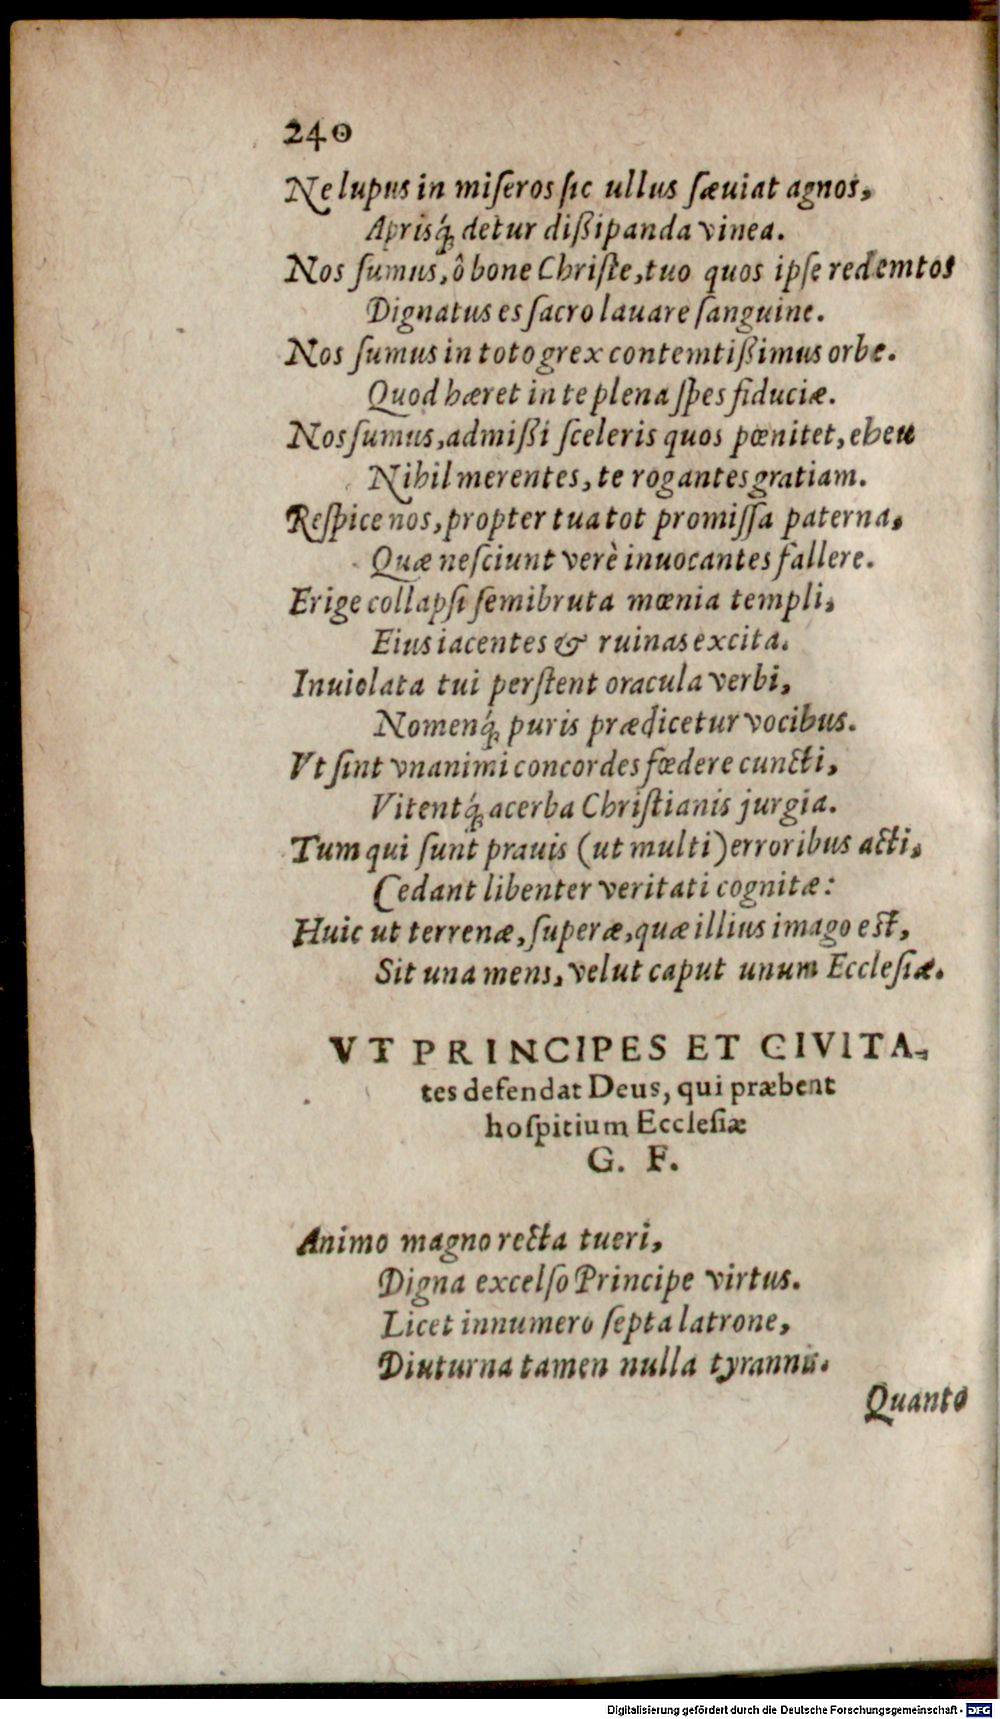 240
Ne lupus in miſeros ſic ullus ſæuiat agnos,
Aprisq́; detur dißipanda vinea.
Nos ſumus, ô bone Chriſte, tuo quos ipſe redemtos
Dignatus es ſacro lauare ſanguine.
Nos ſumus in toto grex contemtißimus orbe.
Quod hæret in te plena ſpes fiduciæ.
Nos ſumus, admißi ſceleris quos pœnitet, eheu
Nihil merentes, te rogantes gratiam.
Reſpice nos, propter tua tot promiſſa paterna,
Quæ neſciunt verè inuocantes fallere.
Erige collapſi ſemibruta mœnia templi,
Eius iacentes & ruinas excita.
Inuiolata tui perſtent oracula verbi,
Nomenq́; puris prædicetur vocibus.
Vt ſint vnanimi concordes fœdere cuncti,
Vitentq́; acerba Chriſtianis jurgia.
Tum qui ſunt prauis (ut multi) erroribus acti,
Cedant libenter veritati cognitæ:
Huic ut terrenæ, ſuperæ, quæ illius imago eſt,
Sit una mens, velut caput unum Eccleſiæ.
VT PRINCIPES ET CIVITA-
tes defendat Deus, qui præbent
hoſpitium Eccleſiæ
G. F.
Animo magno recta tueri,
Digna excelſo Principe virtus.
Licet innumero ſepta latrone,
Diuturna tamen nulla tyrannis.
Quanto
Digitalisierung gefördert durch die Deutsche Forschungsgemeinschaft - DFG